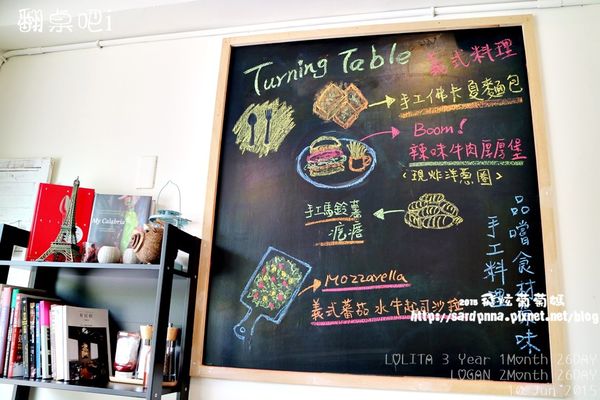 翻桌吧i
Turning Table 義式料理
手工佛卡夏麵包
Boom!
辣味牛肉厚厚堡
(現炸洋蔥圈)
手工馬鈴薯
麂麂
Mozzarella
義式蕃茄水牛起司沙
品嚐食材原味
手工料理
My Calabria
2015 砡玹葡萄媽
https://sardpnna.pixnet.net/blog
LOLITA 3 Year 1Month 26DAY
LOGAN 2Month 26DAY
10 Jun 2015